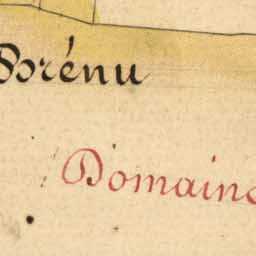 Brénu
Domaine